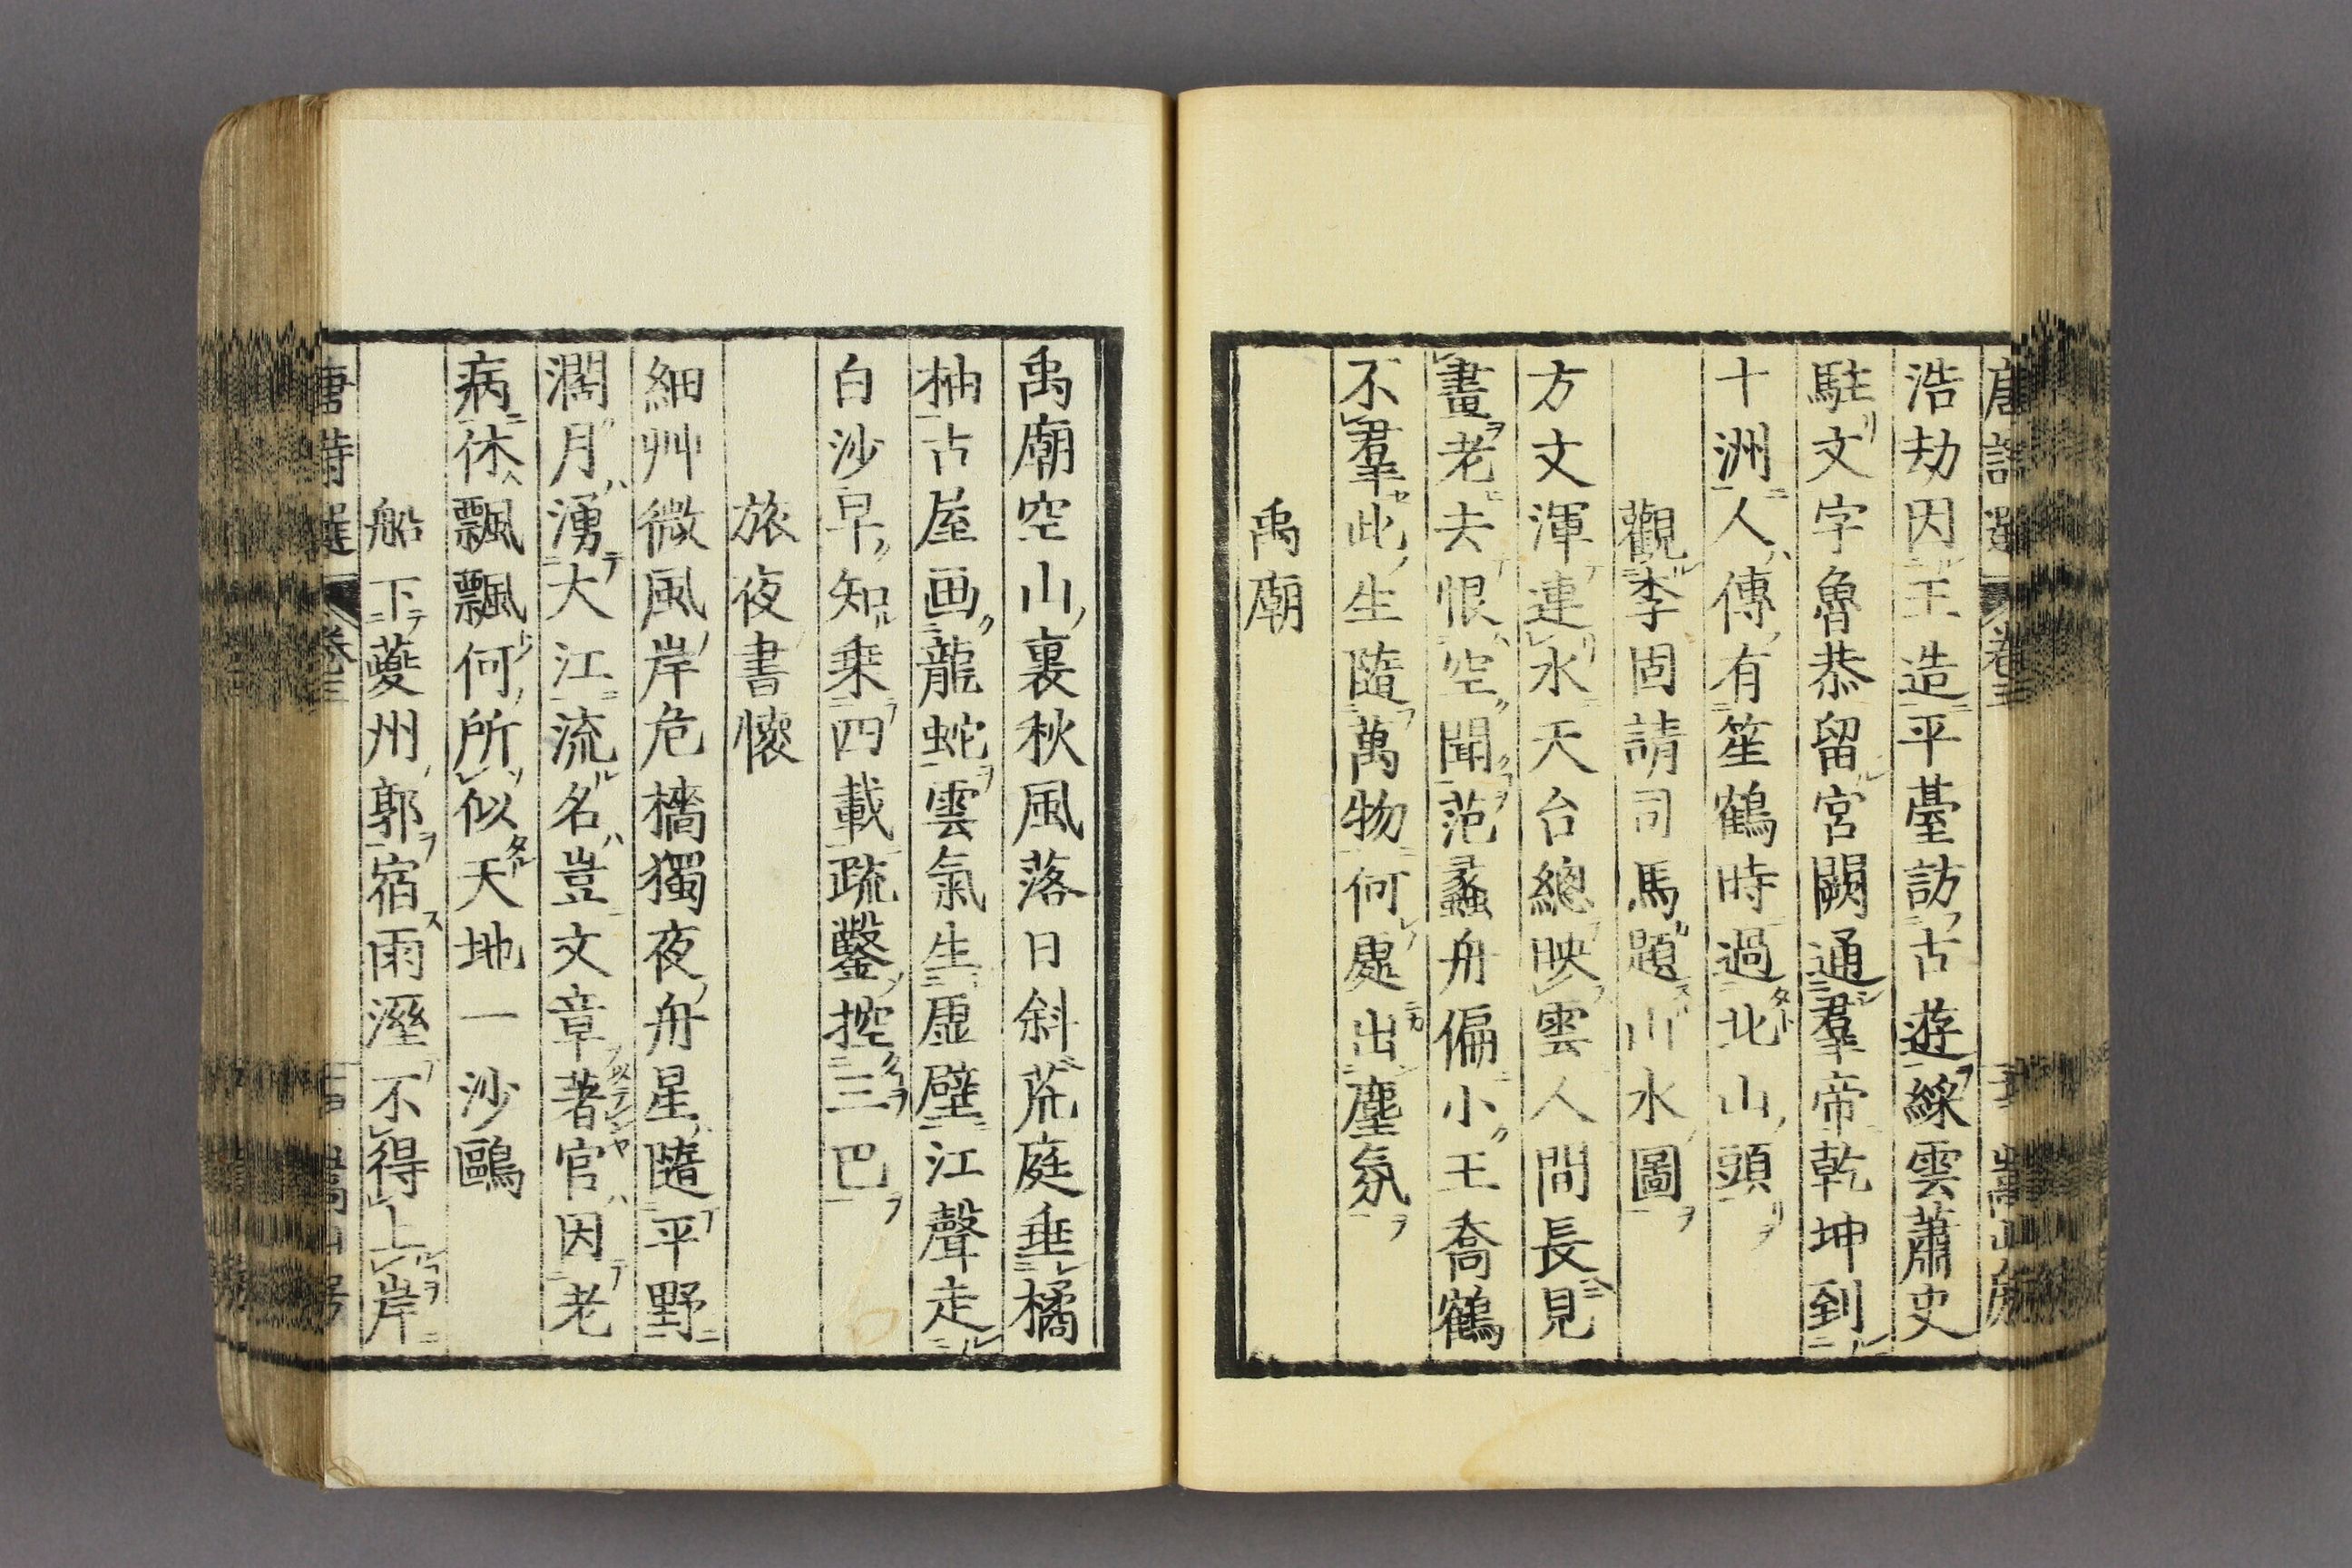 浩劫因王造平臺訪古遊綵雲蕭史
駐文字魯恭留宮闕通羣帝乾坤到
十洲人傳有笙鶴時過北山頭
觀李固請司馬題山水圖
方丈渾連水天台總映雲人間長見
畫老去恨空聞范蠡舟偏小王喬鶴
不羣此生隨萬物何處出塵氛
禹廟
禹廟空山裏秋風落日斜荒庭垂橘
柚古屋画龍蛇雲氣生虛壁江聲走
白沙早知乘四載疏鑿控三巴
旅夜書懷
細艸微風岸危檣獨夜舟星隨平野
濶月湧大江流名豈文章著官因老
病休飄飄何所似天地一沙鷗
船下夔州郭宿雨溼不得上岸
唐詩選 卷三